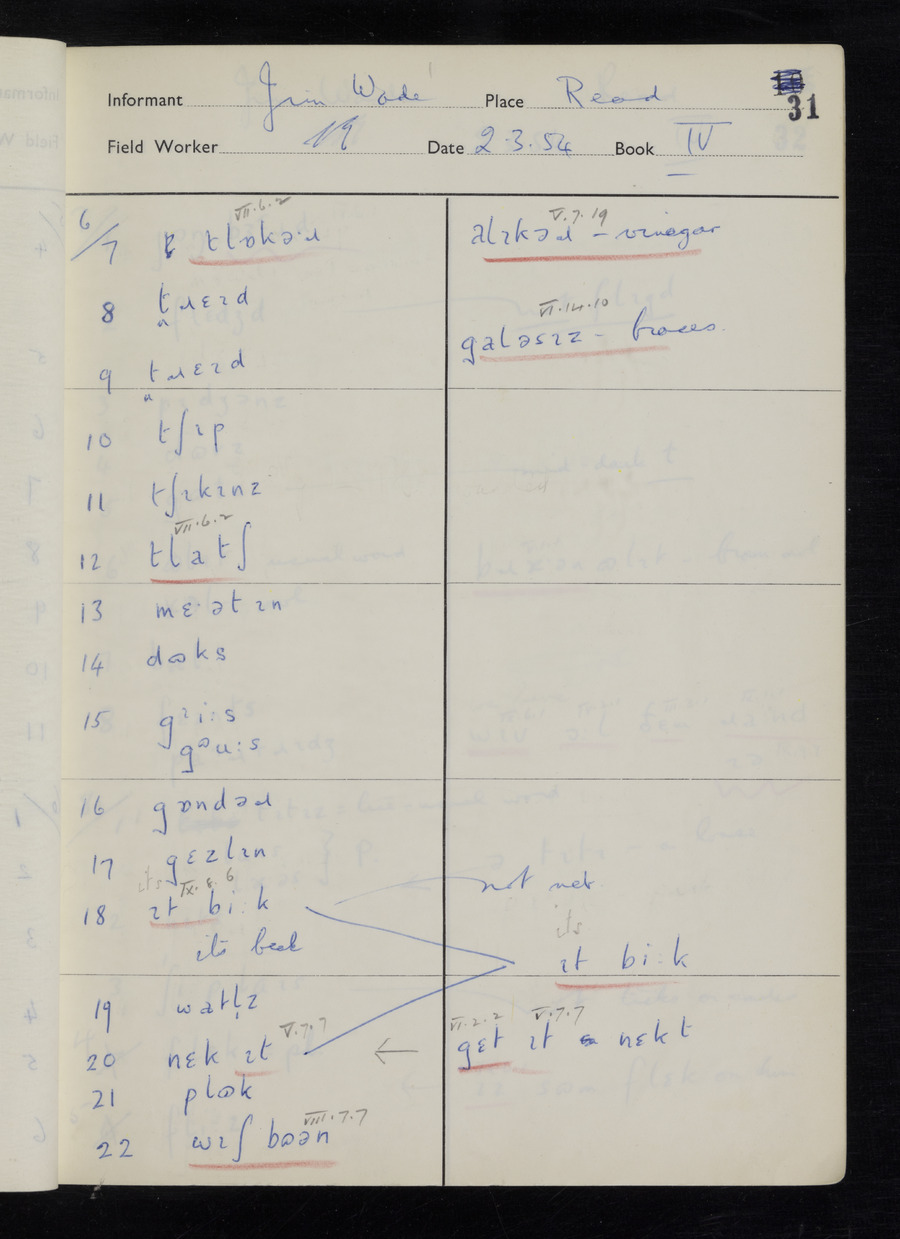 Informant Jim Wade Place Read
31
Field Worker 19 Date 2.3.54 Book IV
6/7 tlɒkə·ɹ VII.6.2
ælɪkəɹ – vinegar V.7.19
8 tɹɛɪd
galəsɪz – braces VI.14.10
9 tɹɛɪd
10 tʃɪp
11 tʃɪkɪnz
12 tlatʃ VII.6.2
13 mɛ·ətɪn
14 dɷks
15 gɪi:s
gəu:s
16 gɒndəɹ
17 gɛzlɪn
its IX.8.6
not neb
18 ɪt bi:k
its
its beak
ɪt bi:k
19 watl̩z
V.7.7
VI.2.2 V.7.7
20 nɛk ɪt
← gɛt ɪt nɛkt
21 plɷk
VIII.7.7
22 wɪʃ bɷən